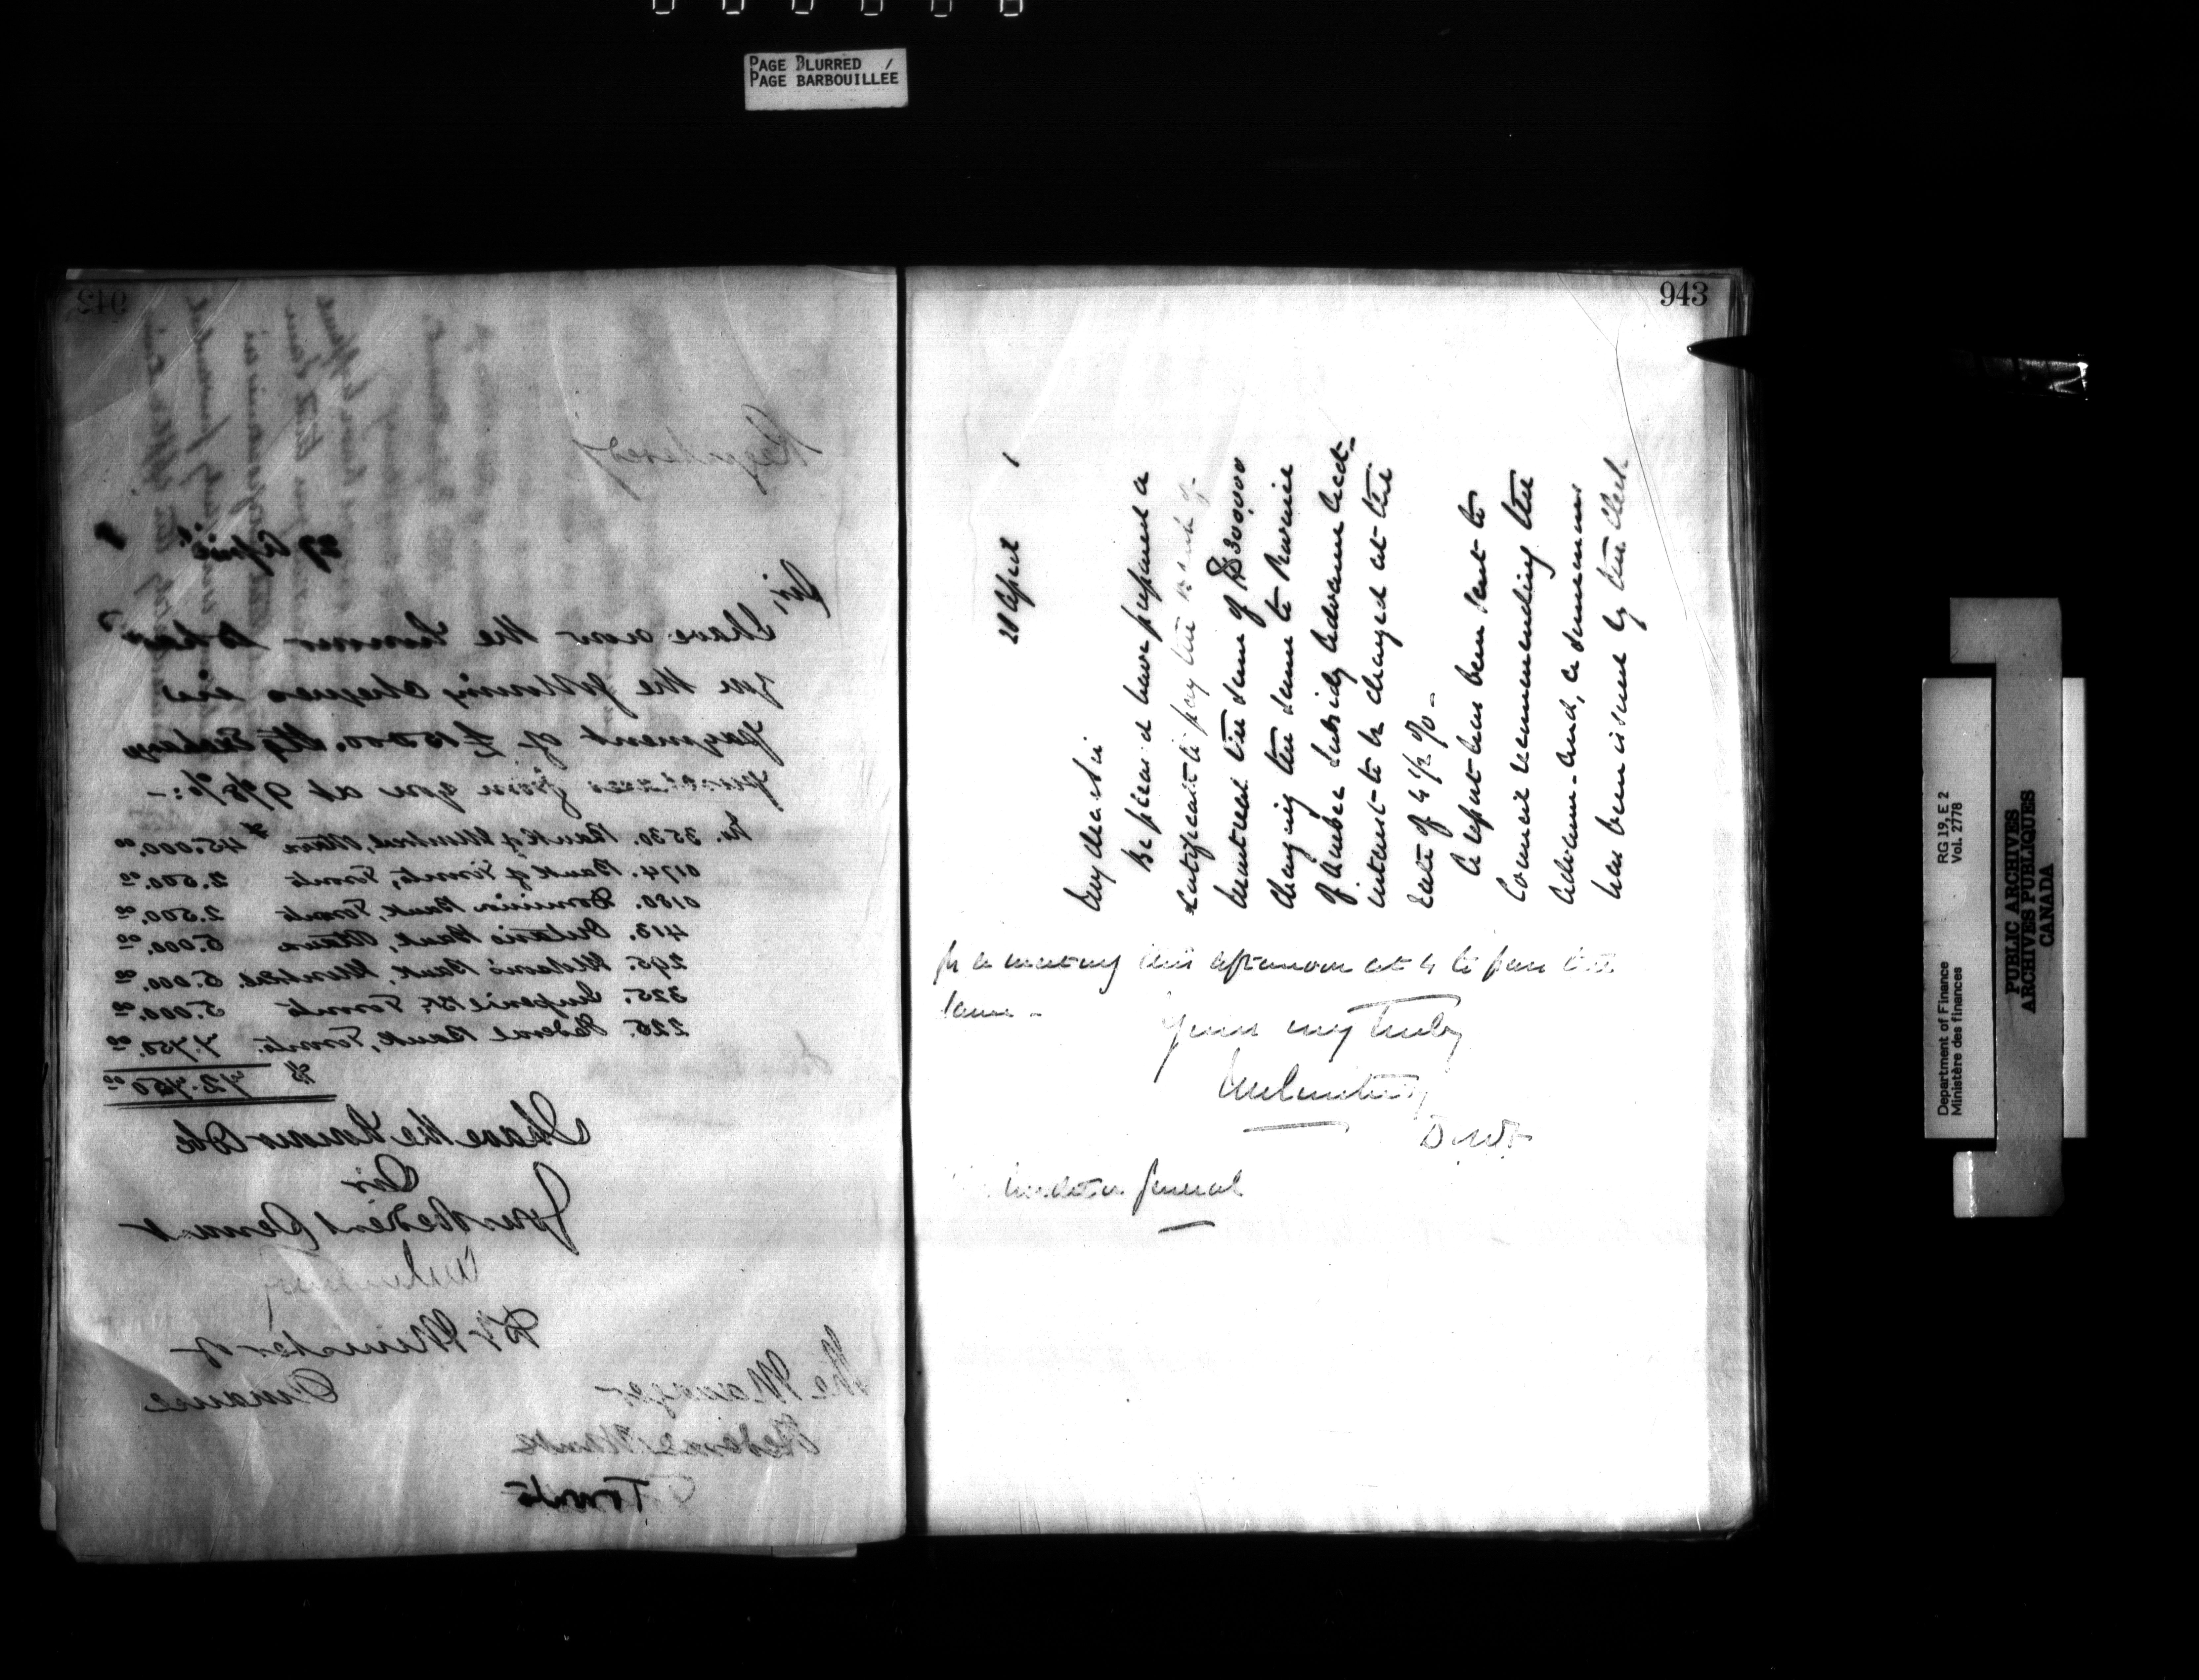 PAGE BLURRED
PAGE BARBOUILLÉE
Registered
27 April
Sir,
I have now the honour to hand
you the following cheques in
payment of £15000. Stg Exchange
purchases from you at 9 5/8 %:-
No. 3530. Bank of Montreal, Ottawa $45.000.00
0174. Bank of Toronto, Toronto 2.500.00
0180. Dominion Bank, Toronto 2.500.00
413. Ontario Bank, Ottawa 5.000.00
295. Molsons Bank, Montreal. 5.000.00
325. Imperial Bk, Toronto 5.000.00
226. Federal Bank, Toronto. 7.750.00
$72.750.00
I have the honour to be
Sir
Your obedient Servant
Dy Minister of
Finance
The Manager
Federal Bank
Toronto
943
28 April
My dear Sir
Be pleased to have prepared a
certificate to pay the Bank of
Montreal the sum of $300,000
charging the same to Province
of Quebec Subsidy Advance Acct-
interest to be charged at the
rate of 4 1/2 % -
A report has been sent to
Council recommending the
Advance - and, a summons
has been issued by the Clerk
for a meeting this afternoon at 4 to pass the
same -
Yours very truly
D.M.F.
Auditor General
Department of Finance
Ministère des finances
RG 19, E 2
Vol. 2778
PUBLIC ARCHIVES
ARCHIVES PUBLIQUES
CANADA